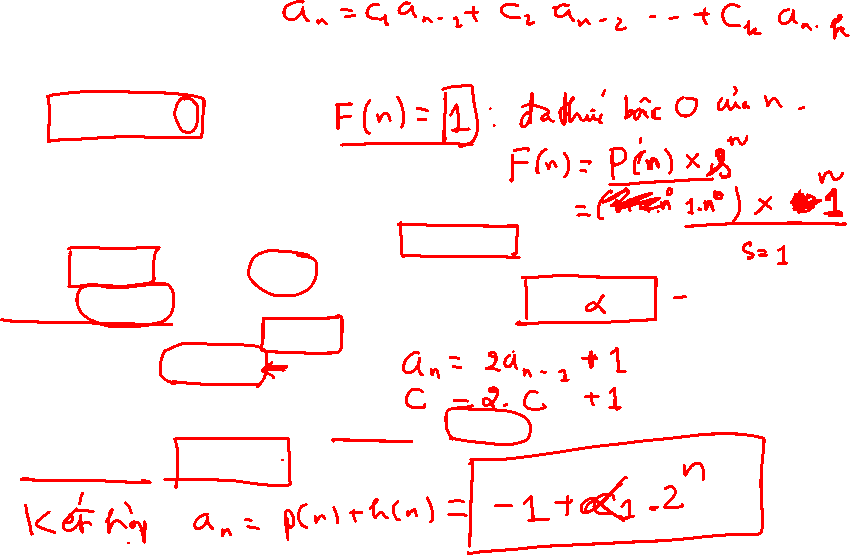 aₙ = c₁ aₙ₋₁ + c₂ aₙ₋₂ ... + cₖ aₙ₋ₖ
F(n) = 1 : đa thức bậc 0 của n.
F(n) = P(n) × sⁿ
= (1.n⁰) × 1ⁿ
s = 1
α
aₙ = 2aₙ₋₁ + 1
C = 2.C + 1
Kết hợp aₙ = p(n) + h(n) = -1 + α₁.2ⁿ